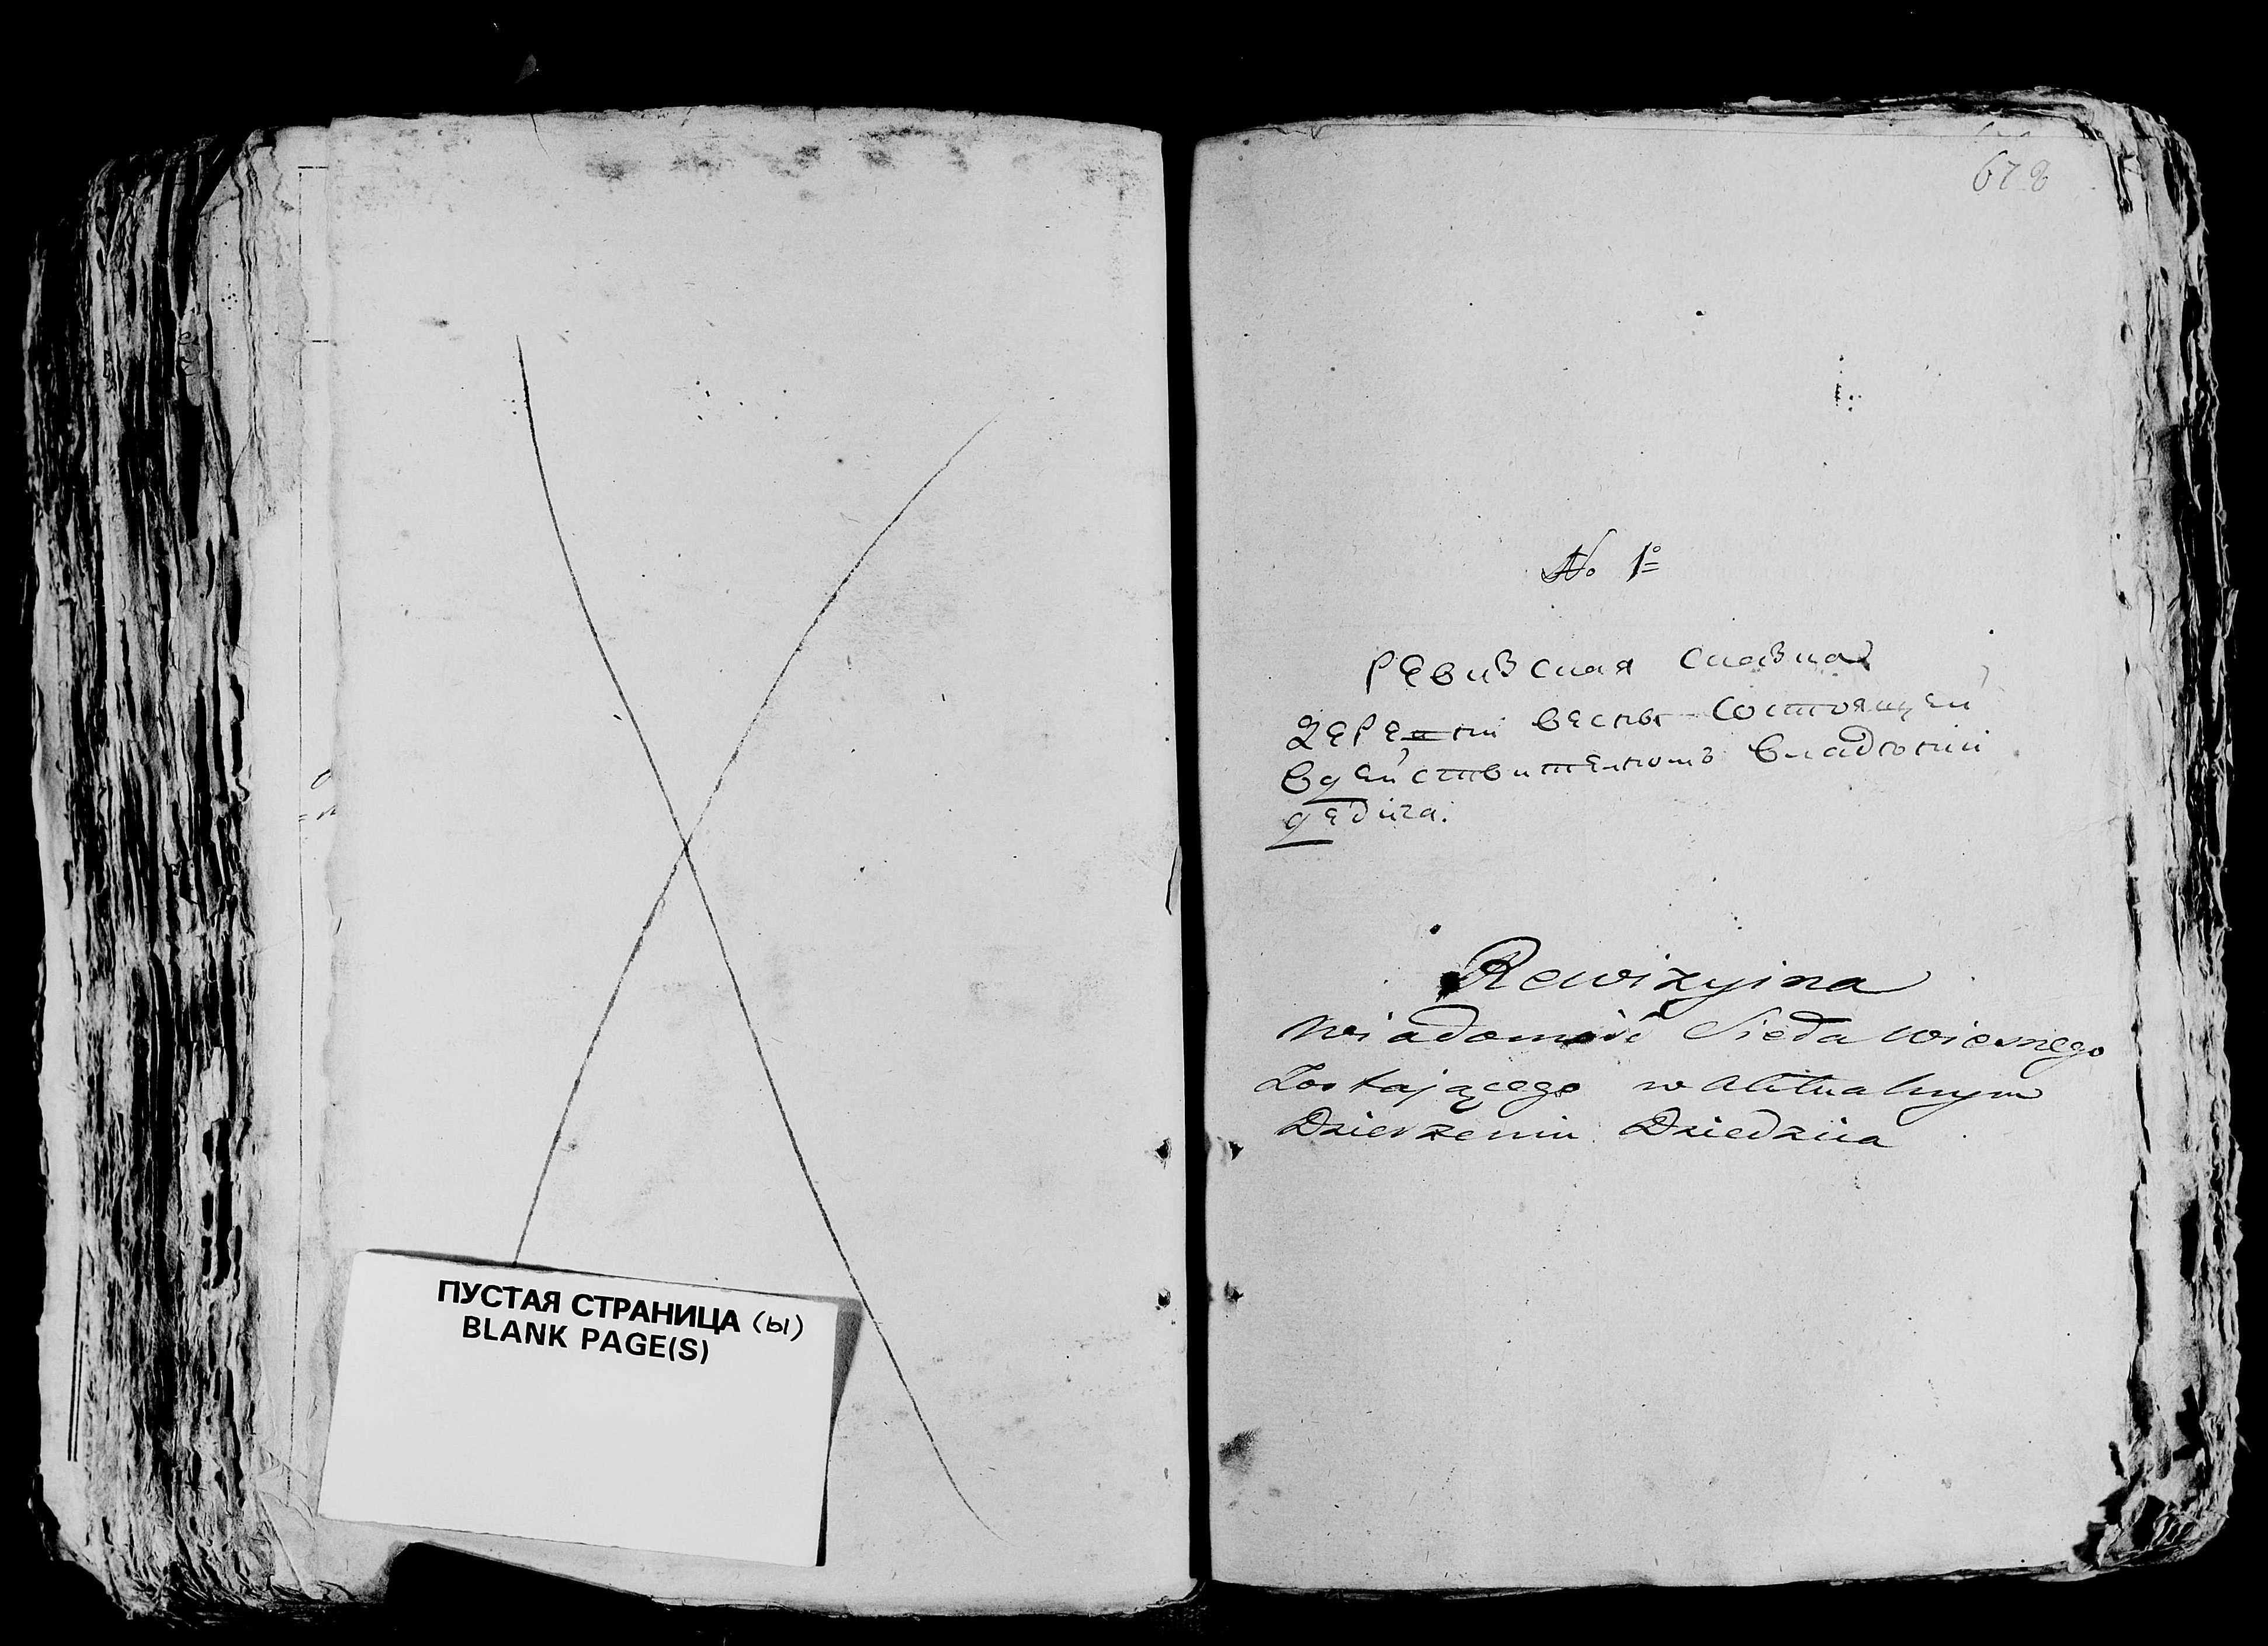 ПУСТАЯ СТРАНИЦА (Ы)
BLANK PAGE(S)
678
No 1º
Ревизская сказка
деревни весны состоящей
в действителномъ владѣнии
дедича.
Rewizyina
Wiadomość Sioła wiesnego
Zostającego w Aktualnym
Dzierzeniu Dziedzica